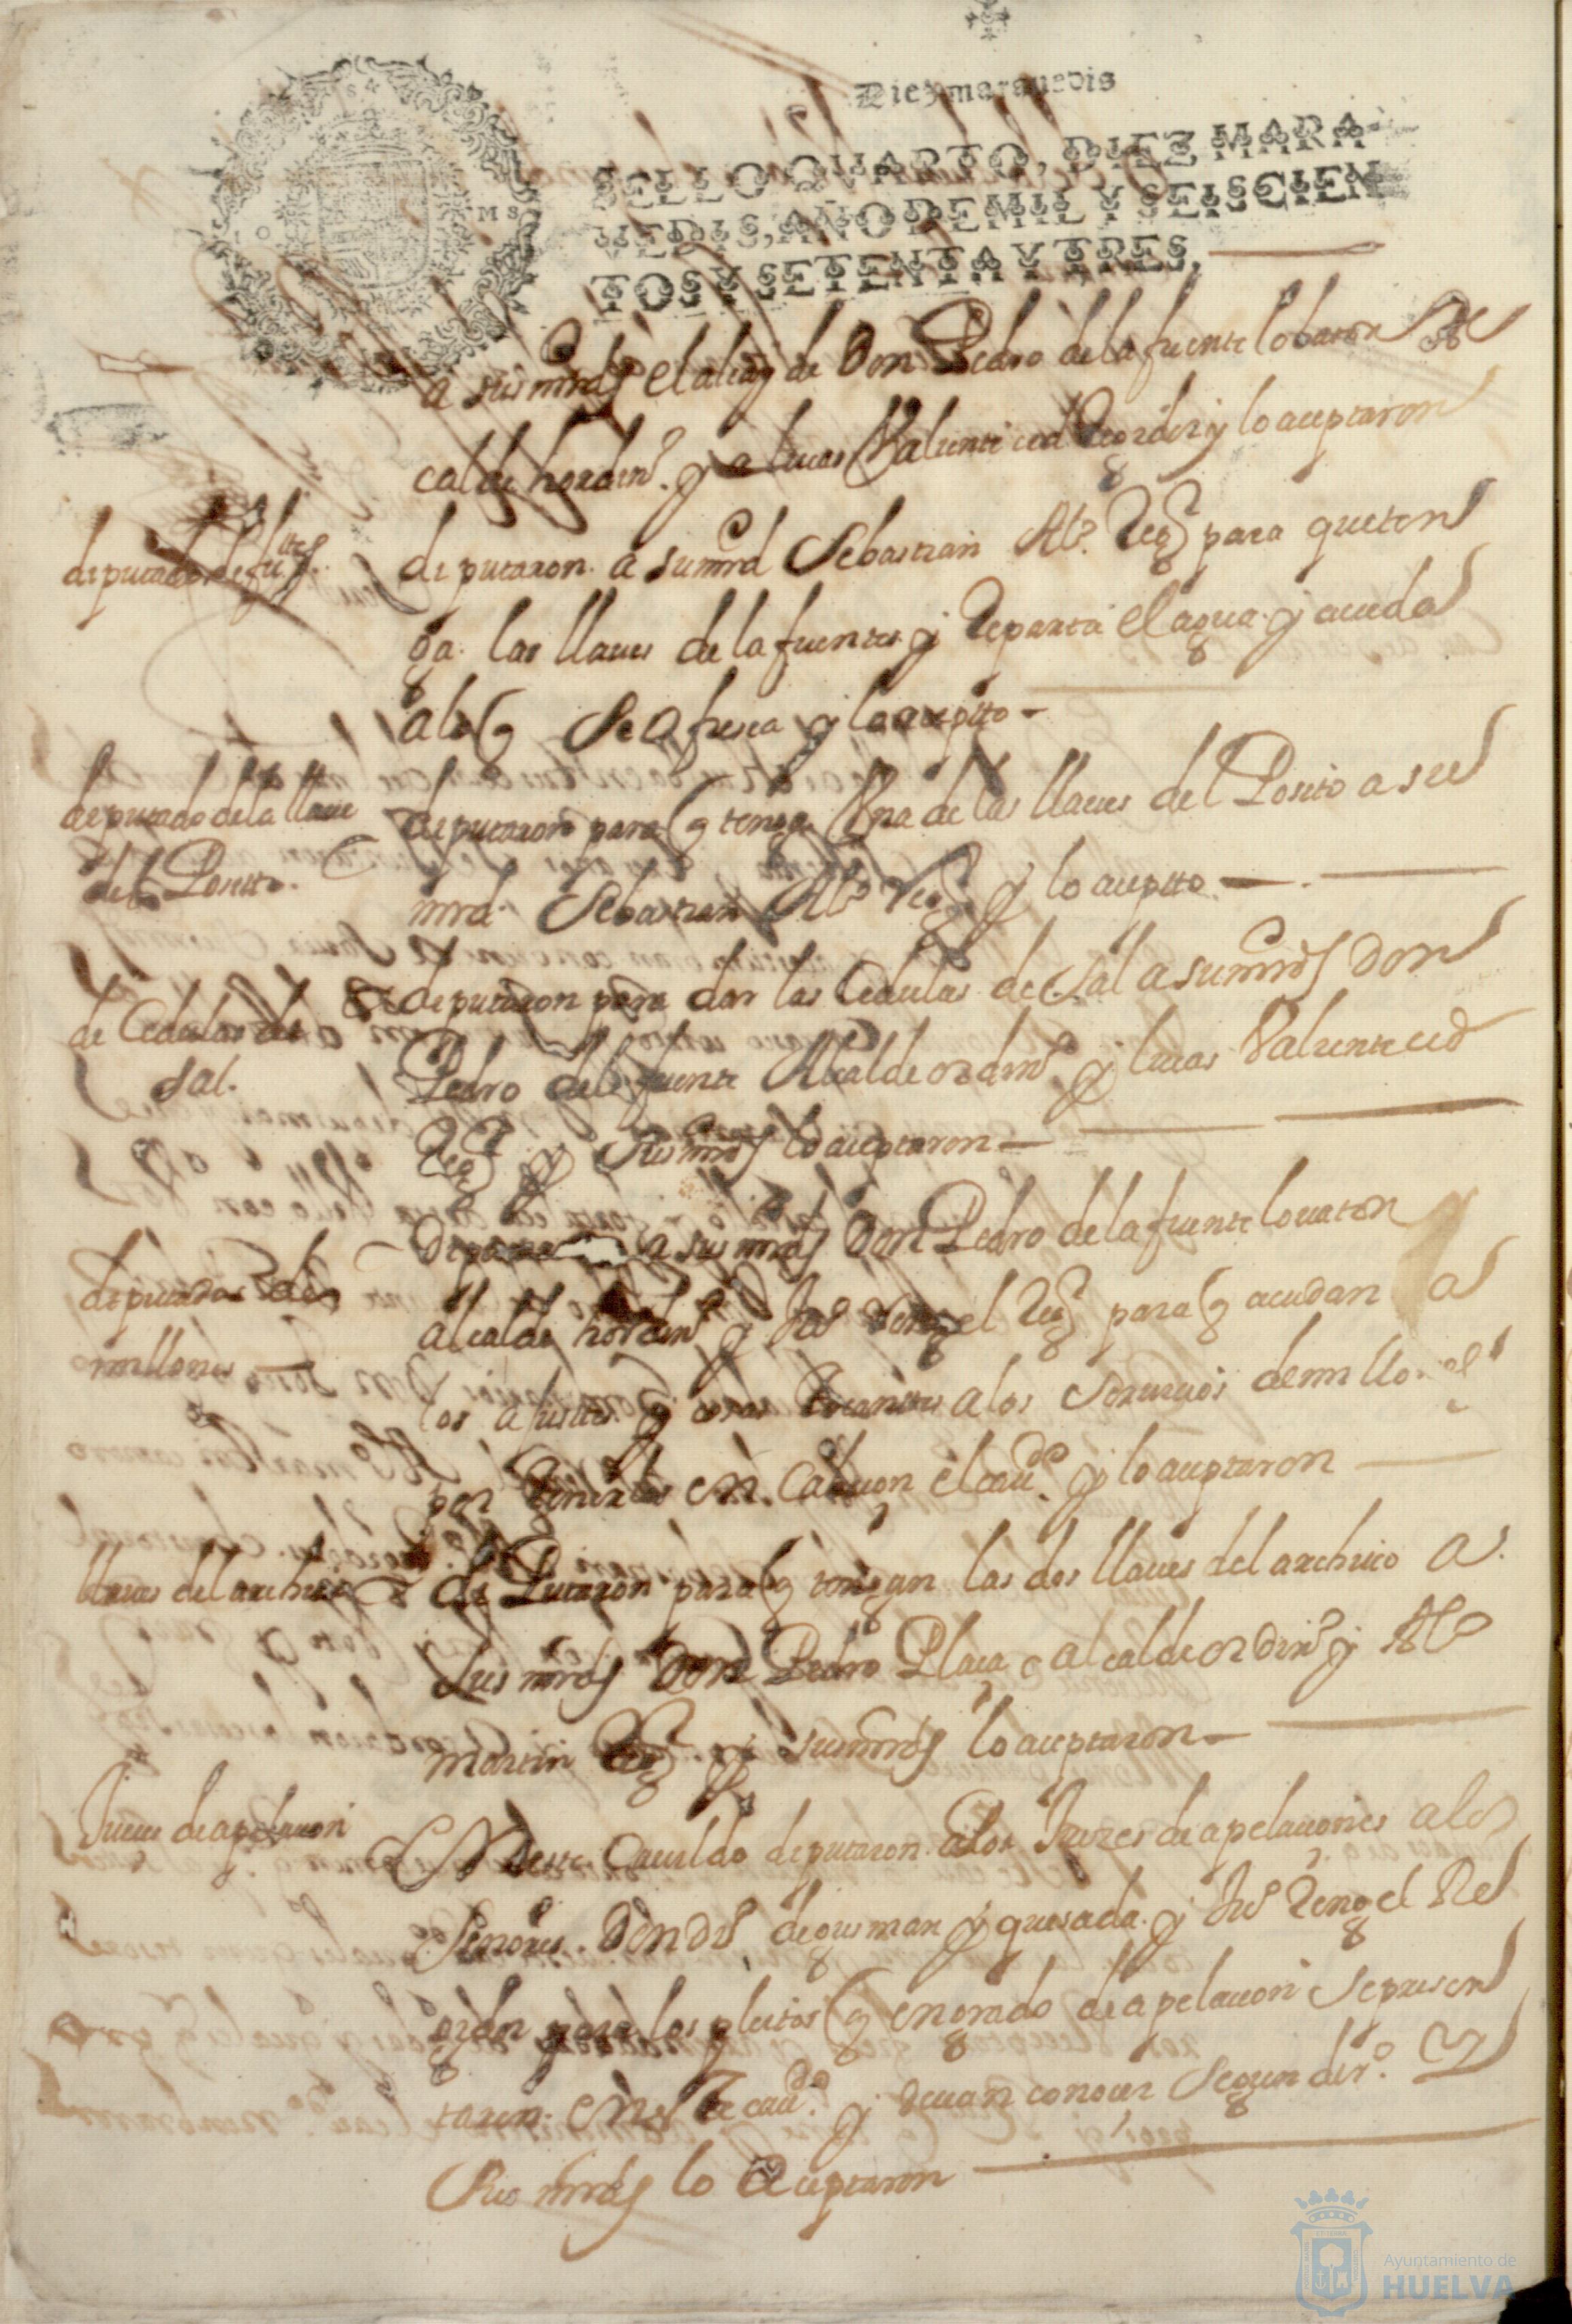 Diez marauedis
SELLO QVARTO, DIEZ MARA-
VEDIS, AÑO DE MIL Y SEISCIEN
TOS Y SETENTA Y TRES.
a sus mrds el alcay de Don Pedro de la fuente lobaton Al
calde hordin.º y a lucas Valiente ced Regidor y lo aceptaron
deputado de fu.tes
deputaron a su mrd Sebastian Al.º Reg para que ten
ga las llaues de la fuentes y Reparta el agua y acuda
a lo q Se ofresca y lo acepto
deputado de la llaue
del Posito.
deputaron para q tenga Vna de las llaues del Posito a su
mrd Sebastian Al.º Reg y lo acepto
de Cedulas de
Sal.
deputaron para dar las Cedulas de Sal a sus mrds Don
Pedro de la fuente Alcalde ordin.º y lucas Valiente ced
Reg y Sus mrds lo aceptaron
deputados de
millones
a sus mrds Don Pedro de la fuente louaton
alcalde hordin.º y Ju.º Rengel Reg para q acudan a
los ajustes y cosas tocantes a los Seruicios de millones
por tenerlos en Cabeçon el cau.do y lo aceptaron
llaues del archiuo
de Putaron para q tengan las dos llaues del archiuo a
Sus mrds Don Pedro Plaça alcalde ordin.º y Al.º
martin Reg y sus mrds lo aceptaron
Jueces de apelacion
En Este Cauildo deputaron a los Juezes de apelaciones a los
Señores Don di.º de gusman y quesada y Ju.º Rengel Re
gidor para los pleitos q en grado de apelacion Se presen
taren en Este cau.do y deuan conocer Segun der.º Y
Sus mrds lo aceptaron
Ayuntamiento de
HUELVA